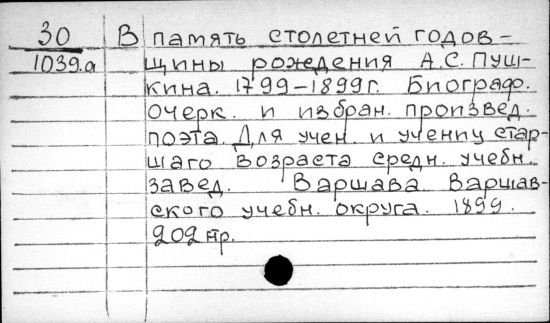 30 В память столетней годов-
1039.а щины рождения А.С. Пуш-
кина. 1799-1899г. Биограф.
очерк. и избран. произвед.
поэта. Для учен. и учениц стар-
шаго возраста средн. учебн.
завед. Варшава. Варшав-
ского учебн. округа. 1899.
202 стр.